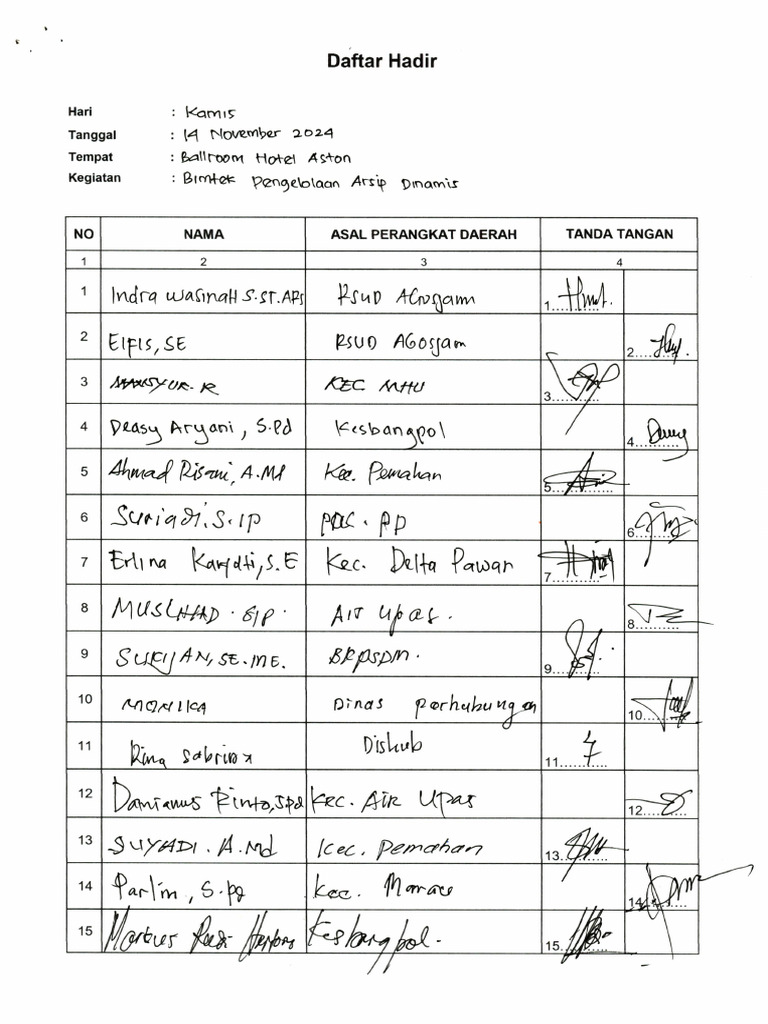 Daftar Hadir
Hari : Kamis
Tanggal : 14 November 2024
Tempat : Ballroom Hotel Aston
Kegiatan : Bimtek Pengelolaan Arsip Dinamis
NO NAMA ASAL PERANGKAT DAERAH TANDA TANGAN
1 2 3 4
1 Indra Wasinah S.ST.ARS RSUD Agoesdjam 1
2 Elfis, SE RSUD AGOesdjam 2
3 MANSYUR. R KEC MHU 3
4 Deasy Aryani, S.Pd Kesbangpol 4
5 Ahmad Risani, A.Md Kec. Pemahan 5
6 Suriadi, S.IP 6
7 Erlina Karyati, S.E Kec. Delta Pawan 7
8 SIP. Air Upas. 8
9 SUKIJAN, SE. ME. BKPSDM. 9
10 MONIKA Dinas Perhubungan 10
11 Rina Sabrina Dishub 11
12 Damianus Rinto, Spd Kec. Air Upas 12
13 SUYADI. A.Md Kec. Pemahan 13
14 Parlin, S.Pd Kec. 14
15 Markus Kesbangpol. 15